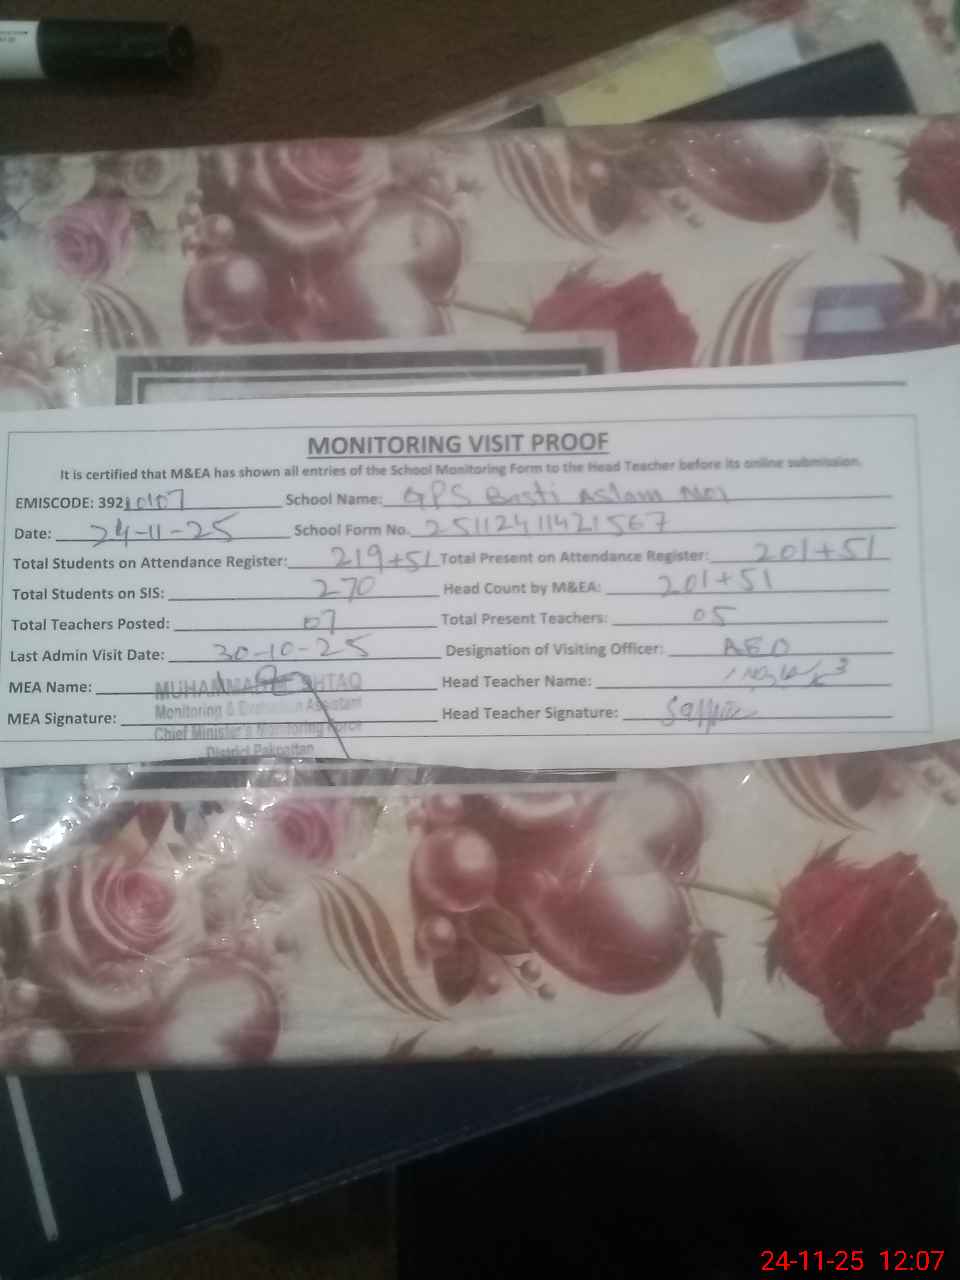 MONITORING VISIT PROOF
It is certified that M&EA has shown all entries of the School Monitoring Form to the Head Teacher before its online submission.
EMISCODE: 39210107 School Name: GPS Basti Aslam No1
Date: 24-11-25 School Form No. 25112411421567
Total Students on Attendance Register: 219+51 Total Present on Attendance Register: 201+51
Total Students on SIS: 270 Head Count by M&EA: 201+51
Total Teachers Posted: 07 Total Present Teachers: 05
Last Admin Visit Date: 30-10-25 Designation of Visiting Officer: AEO
MEA Name: MUHAMMAD Head Teacher Name:
Monitoring & Evaluation Assistant
MEA Signature: Head Teacher Signature:
Chief Minister's Monitoring Force
District Pakpattan
24-11-25 12:07